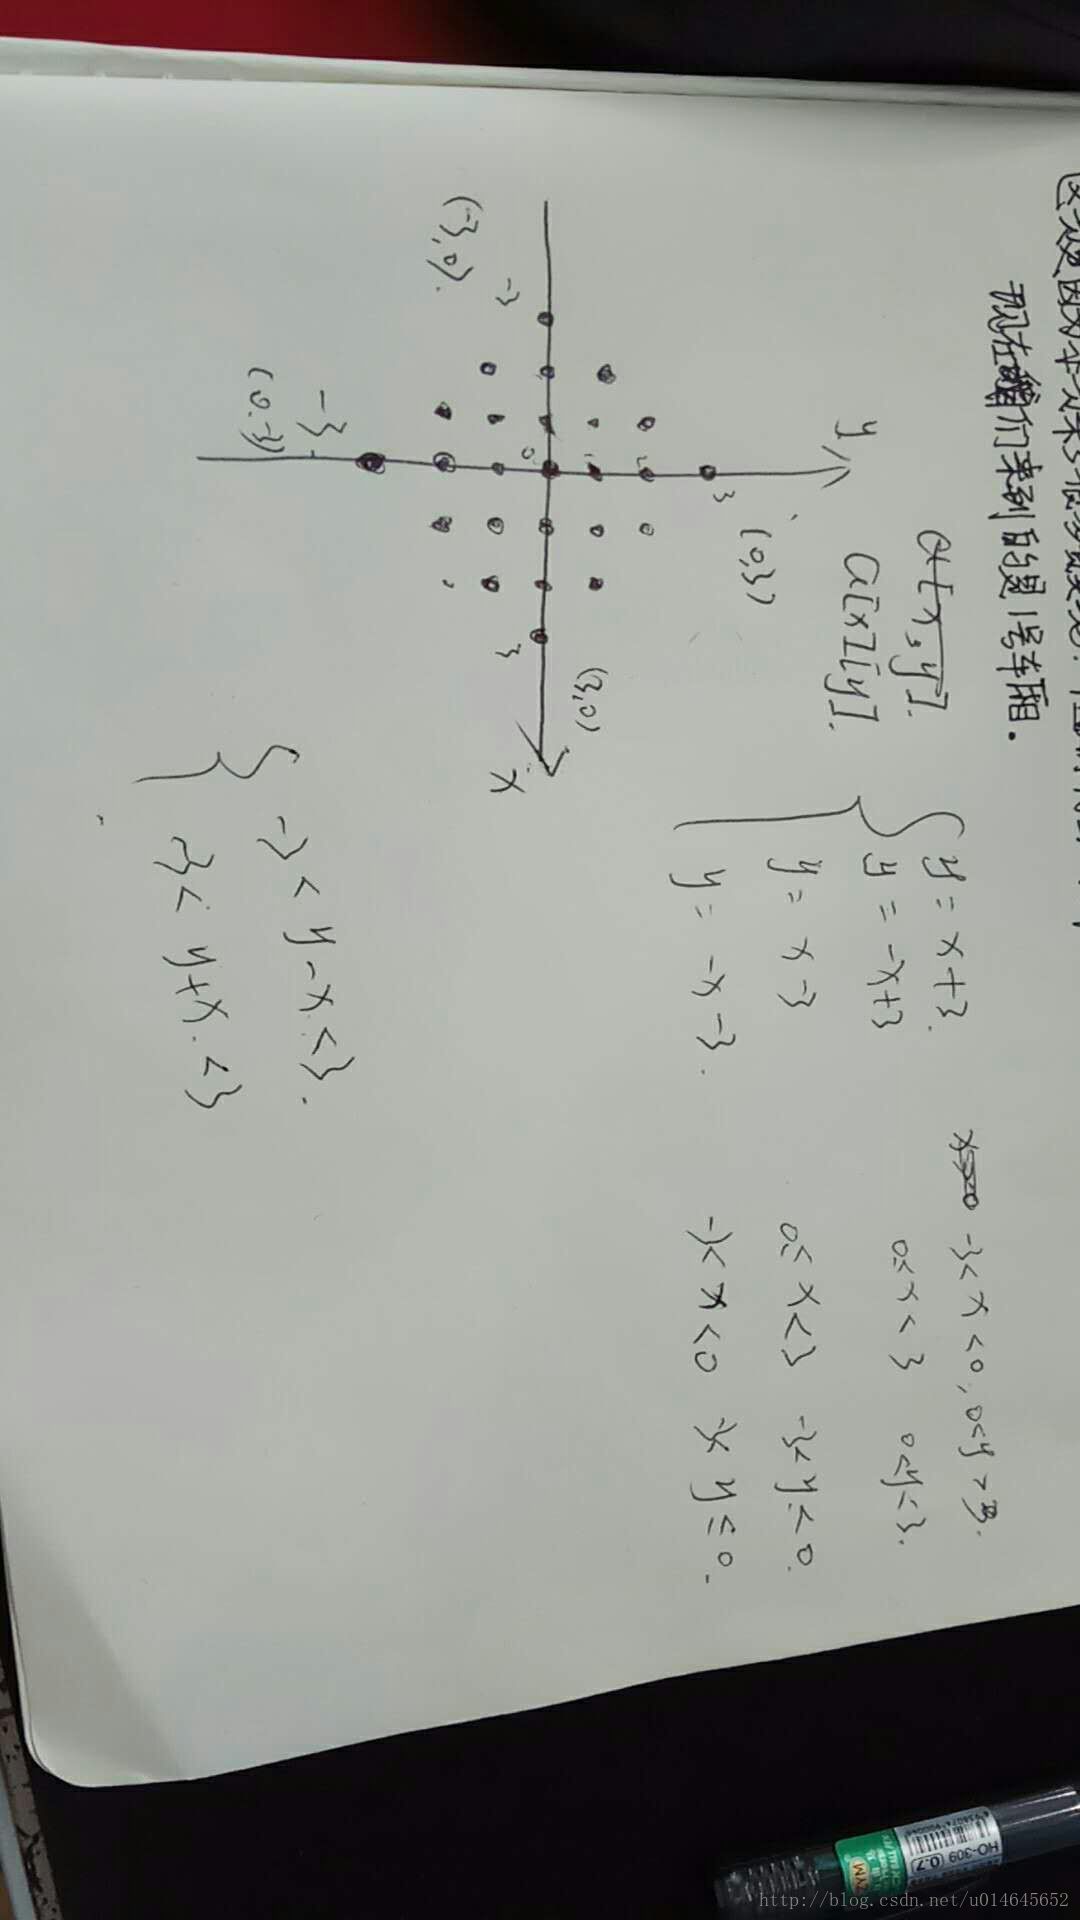 现在我们来到的是1号车厢.
a[x,y].
a[x][y].
y
x
0
1
2
3
3
-3
-3
(0,3)
(3,0)
(-3,0).
(0.-3)
y = x+3.
y = -x+3
y = x-3
y = -x-3.
-3< x <0, 0<y
0≤ x < 3 0<y<3.
0≤ x<3 -3<y<0.
-3< x <0 -3< y ≤0.
-3 < y-x <3.
-3 < y+x. <3
HO-309 0.7
http://blog.csdn.net/u014645652